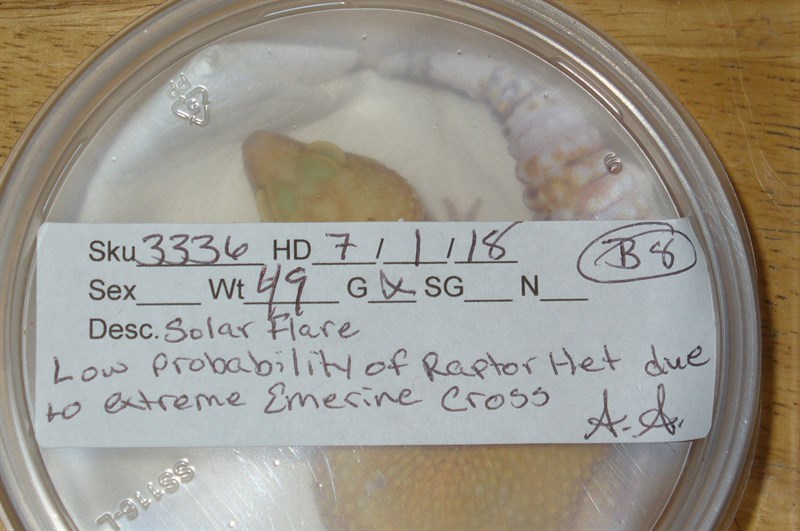 PP
6
Sku 3336 HD 7 / 1 / 18
B 8
Sex____ Wt 49 G X SG___ N___
Desc. Solar Flare
Low probability of Raptor Het due
to extreme Emerine Cross
A.A.
SS116-L